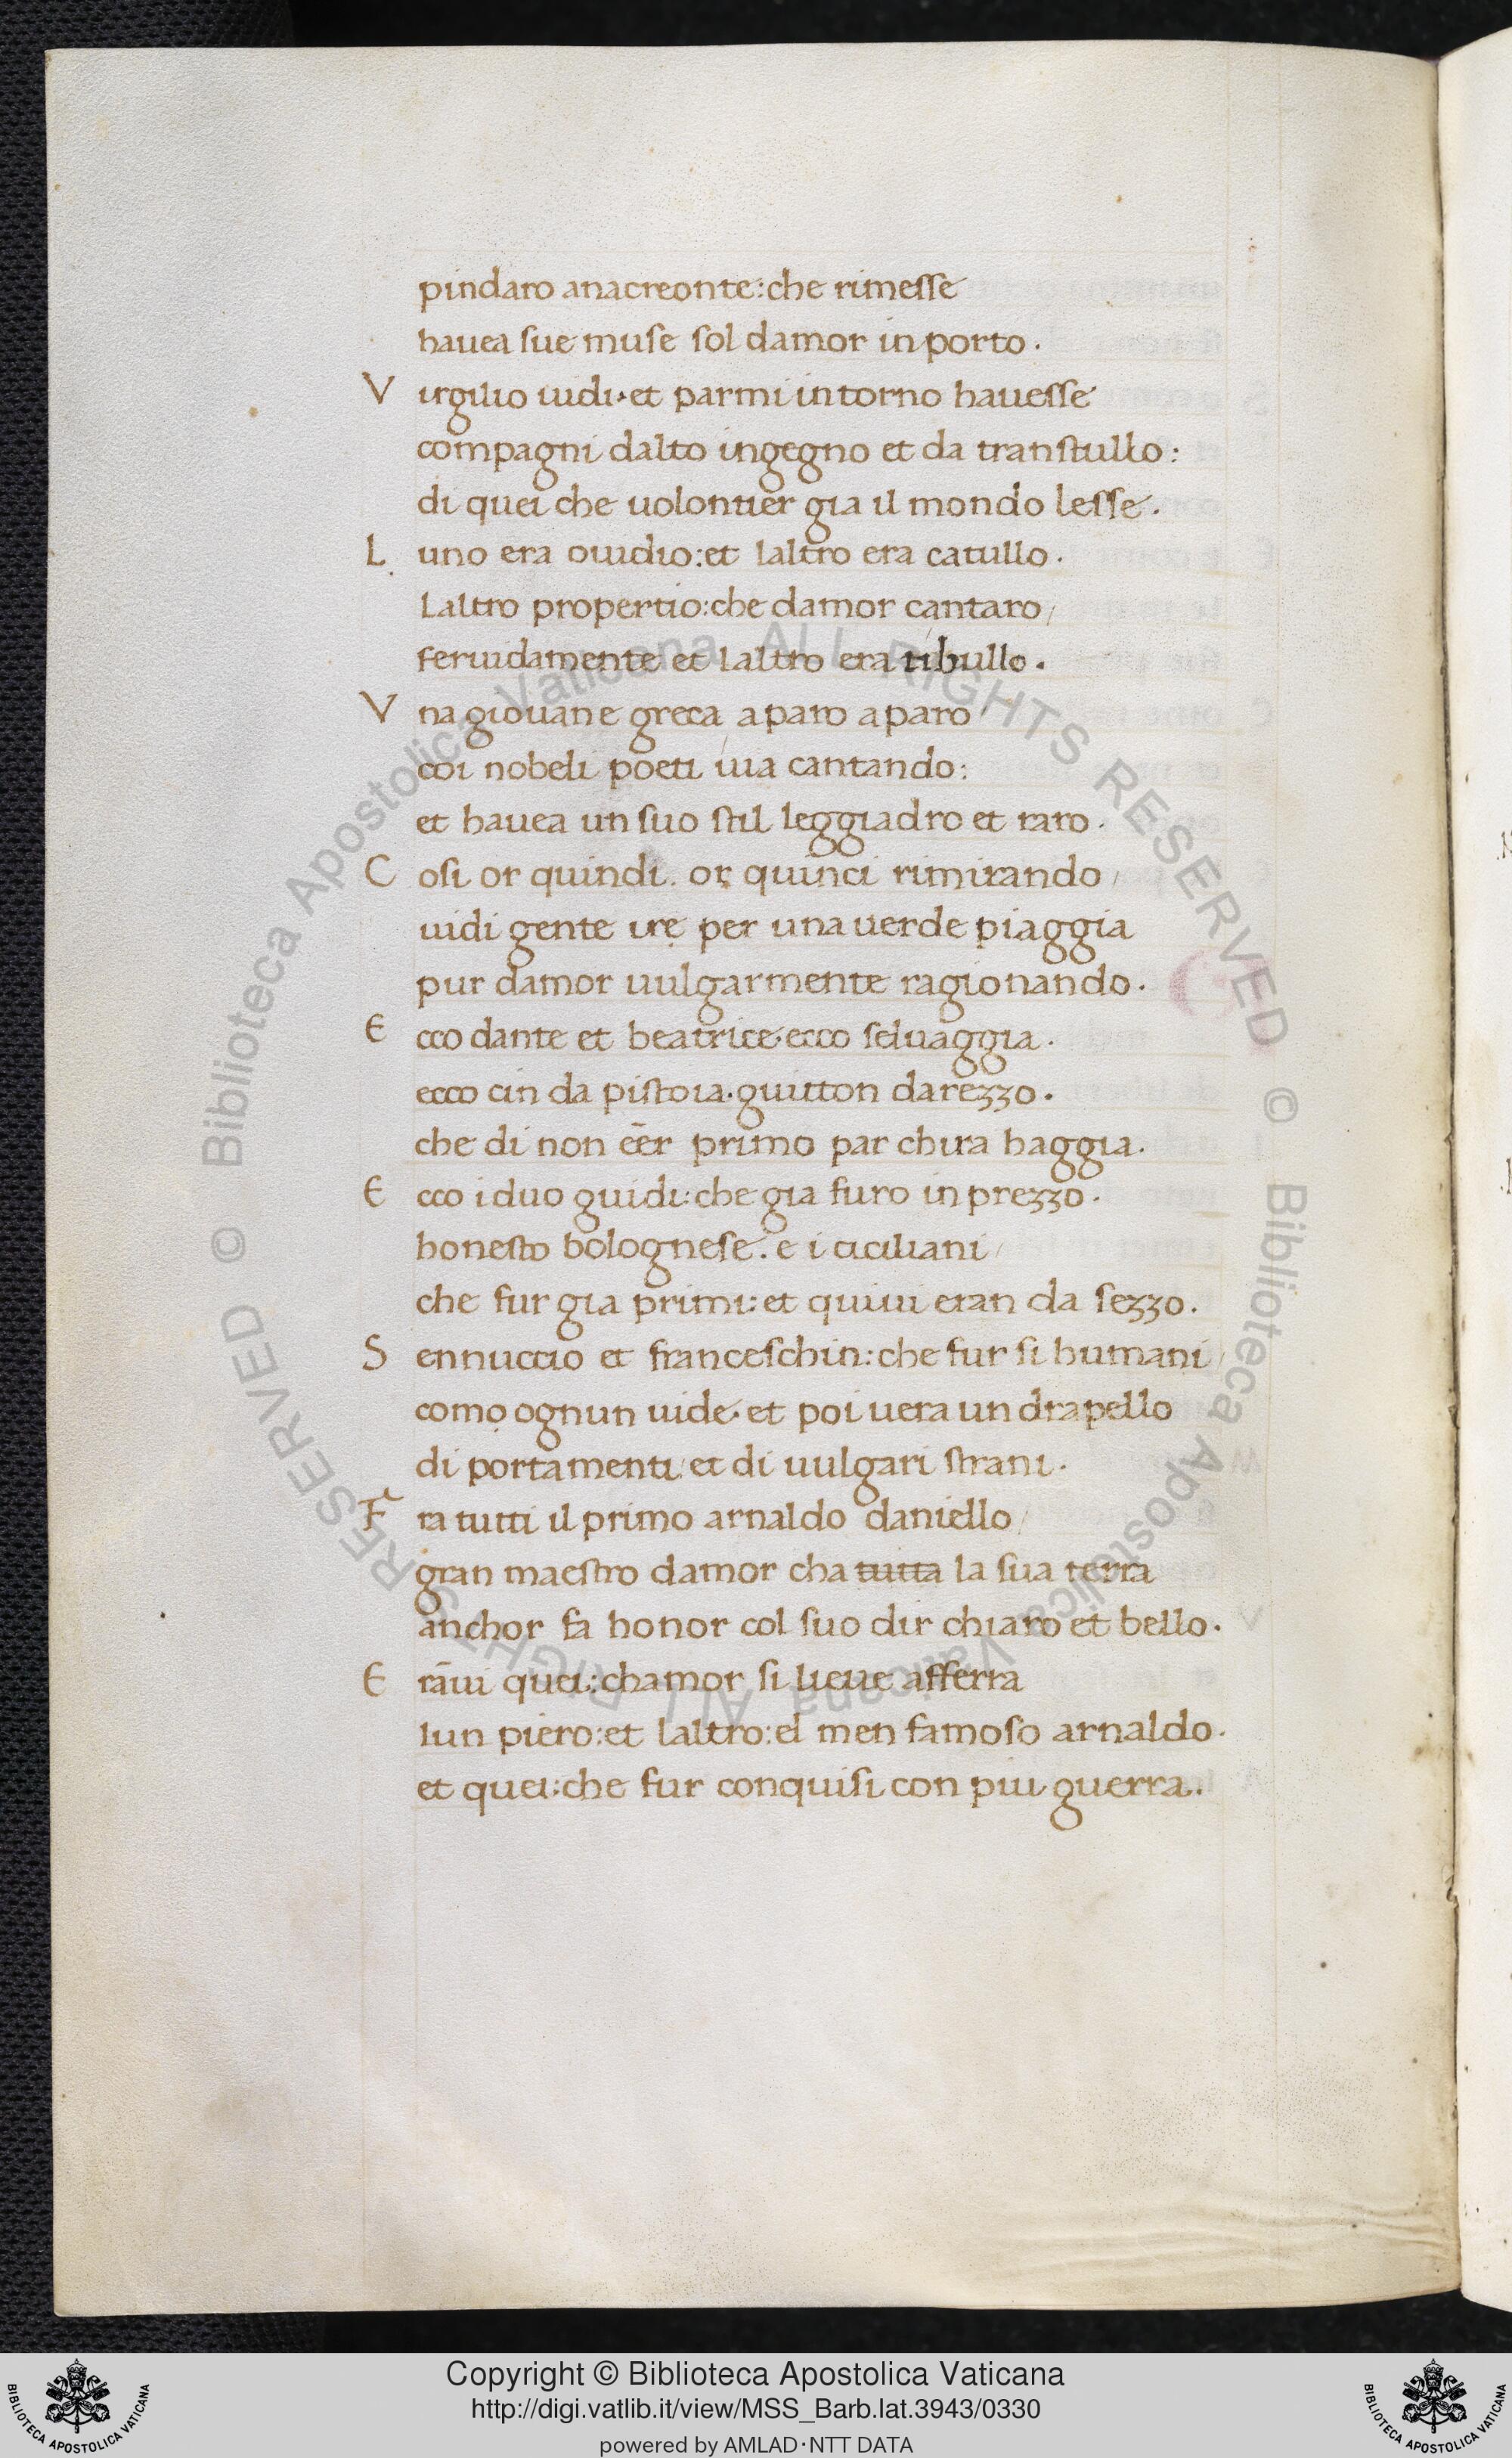 pindaro anacreonte: che rimesse
hauea sue muse sol damor in porto.
V irgilio uidi· et parmi intorno hauesse
compagni dalto ingegno et da transtullo:
di quei che uolontier gia il mondo lesse.
L uno era ouidio: et laltro era catullo.
Laltro propertio: che damor cantaro/
feruidamente et laltro era tibullo.
V na giouane greca a paro a paro
coi nobeli poeti iua cantando:
et hauea un suo stil leggiadro et raro.
C osi or quindi. or quinci rimirando/
uidi gente ire per una uerde piaggia
pur damor uulgarmente ragionando.
E cco dante et beatrice· ecco seluaggia.
ecco cin da pistoia. guitton darezzo.
che di non eēr primo par chira haggia.
E cco i duo guidi: che gia furo in prezzo.
honesto bolognese. e i ciciliani/
che fur gia primi: et quiui eran da sezzo.
S ennuccio et franceschin: che fur si humani/
como ognun uide· et poi uera un drapello
di portamenti/ et di uulgari strani.
F ra tutti il primo arnaldo daniello/
gran maestro damor cha tutta la sua terra
anchor fa honor col suo dir chiaro et bello.
E rāui quei: chamor si lieue afferra
lun piero: et laltro: el men famoso arnaldo.
et quei: che fur conquisi con piu guerra.
Copyright © Biblioteca Apostolica Vaticana
http://digi.vatlib.it/view/MSS_Barb.lat.3943/0330
powered by AMLAD·NTT DATA
BIBLIOTECA APOSTOLICA VATICANA
BIBLIOTECA APOSTOLICA VATICANA
© Biblioteca Apostolica Vaticana ALL RIGHTS RESERVED
© Biblioteca Apostolica Vaticana ALL RIGHTS RESERVED